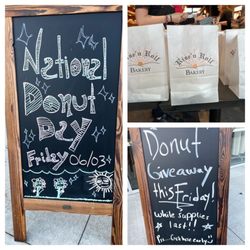 National
Donut
Day
Friday 06/03
Rise'n Roll
BAKERY
Rise'n Roll
BAKERY
Donut
Giveaway
this Friday!
while supplies
last!!